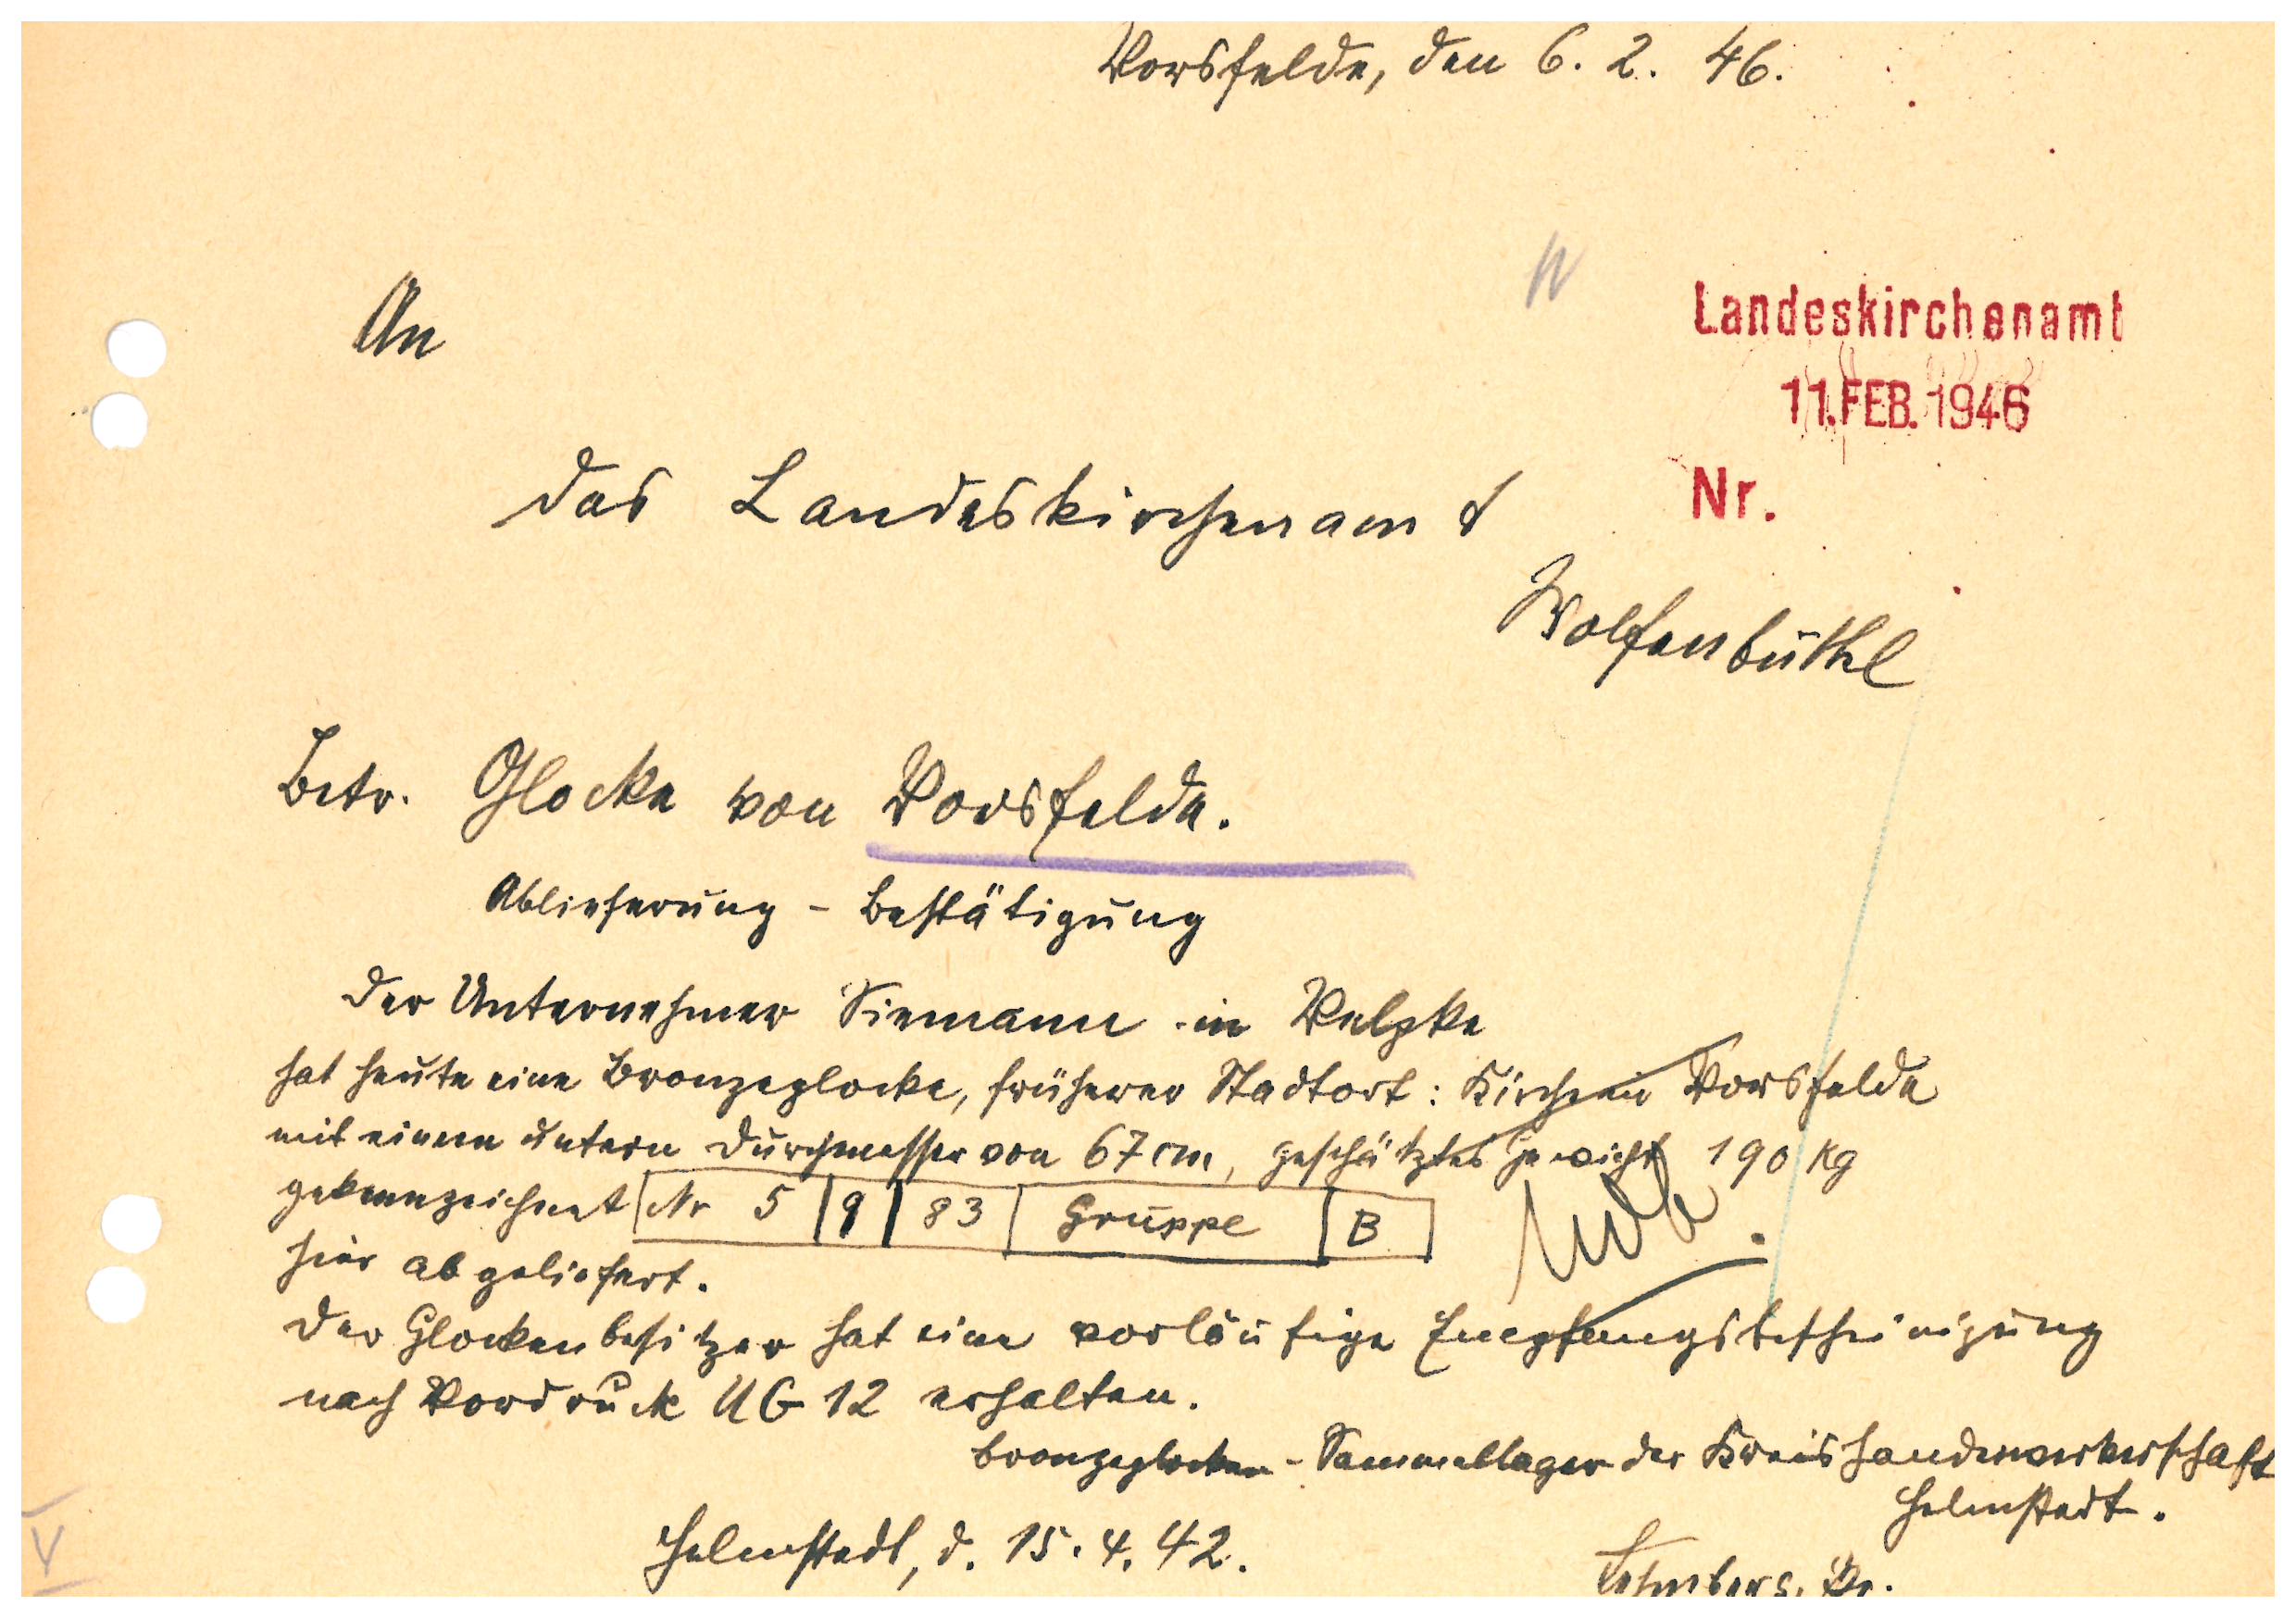 Vorsfelde, den 6. 2. 46.
An
Landeskirchenamt
11. FEB. 1946
das Landeskirchenamt
Nr.
Wolfenbüttel
Betr. Glocke von Vorsfelde.
Ablieferung - Bestätigung
Der Unternehmer Siemann in Velpke
hat heute eine Bronzeglocke, früherer Stadtort: Kirche in Vorsfelde
mit einem untern Durchmesser von 67 cm, geschätztes Gewicht 190 kg
gekennzeichnet Nr 5 9 83 Gruppe B
hier abgeliefert.
Der Glockenbesitzer hat eine vorläufige Empfangsbescheinigung
nach Vordruck UG 12 erhalten.
Bronzeglocken - Sammellager der Kreishandwerkerschaft
Helmstedt.
Helmstedt, d. 15. 4. 42.
V